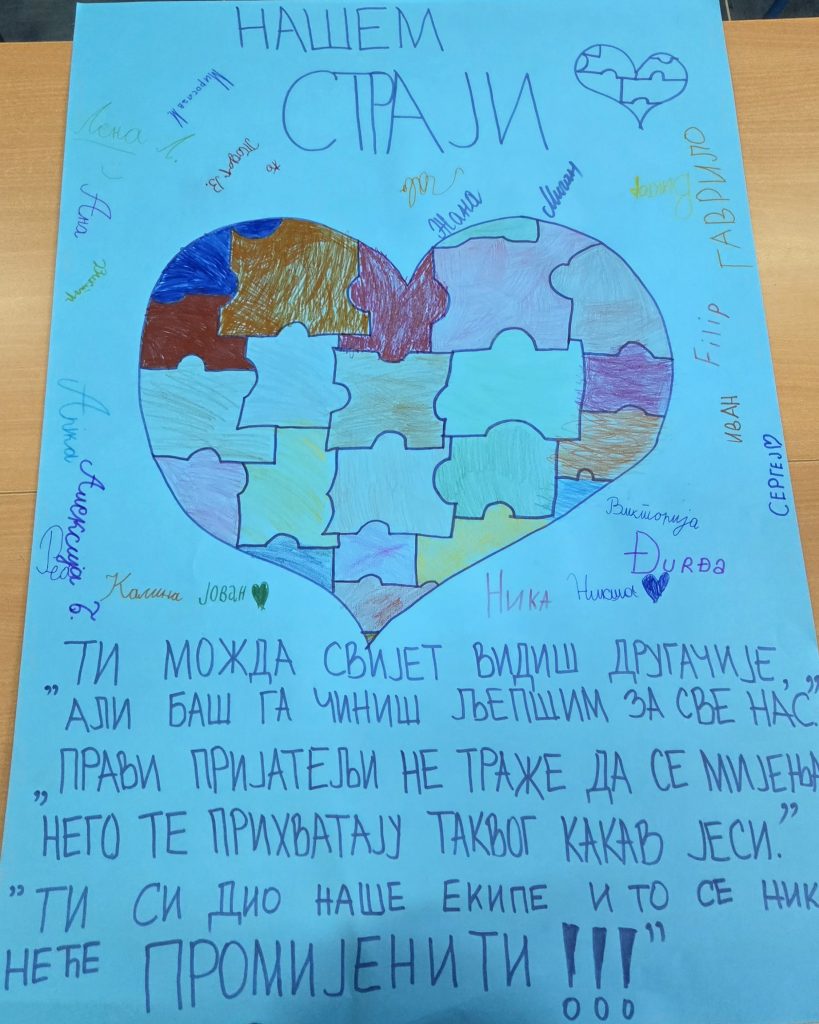 НАШЕМ
СТРАЈИ
Мирослав М
Лена Л.
Ана
Жана
Милан
ГАВРИЛО
Filip
ИВАН
СЕРГЕЈ
Викторија
ĐURĐA
Ника
Калина
ЈОВАН
Алексија Б.
„ТИ МОЖДА СВИЈЕТ ВИДИШ ДРУГАЧИЈЕ,
АЛИ БАШ ГА ЧИНИШ ЉЕПШИМ ЗА СВЕ НАС."
„ПРАВИ ПРИЈАТЕЉИ НЕ ТРАЖЕ ДА СЕ МИЈЕЊА
НЕГО ТЕ ПРИХВАТАЈУ ТАКВОГ КАКАВ ЈЕСИ."
"ТИ СИ ДИО НАШЕ ЕКИПЕ И ТО СЕ НИК
НЕЋЕ ПРОМИЈЕНИТИ !!!"